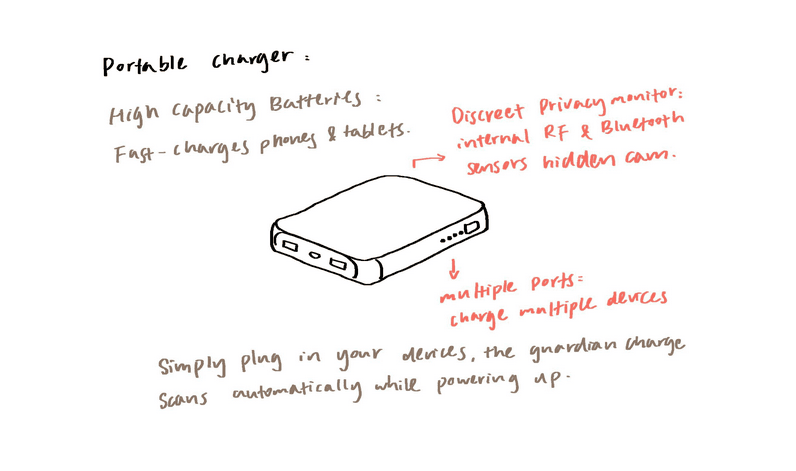 Portable charger :
High Capacity Batteries :
Fast-charges phones & tablets.
Discreet Privacy monitor:
internal RF & Bluetooth
sensors hidden cam.
multiple ports:
charge multiple devices
Simply plug in your devices, the guardian charge
Scans automatically while powering up.